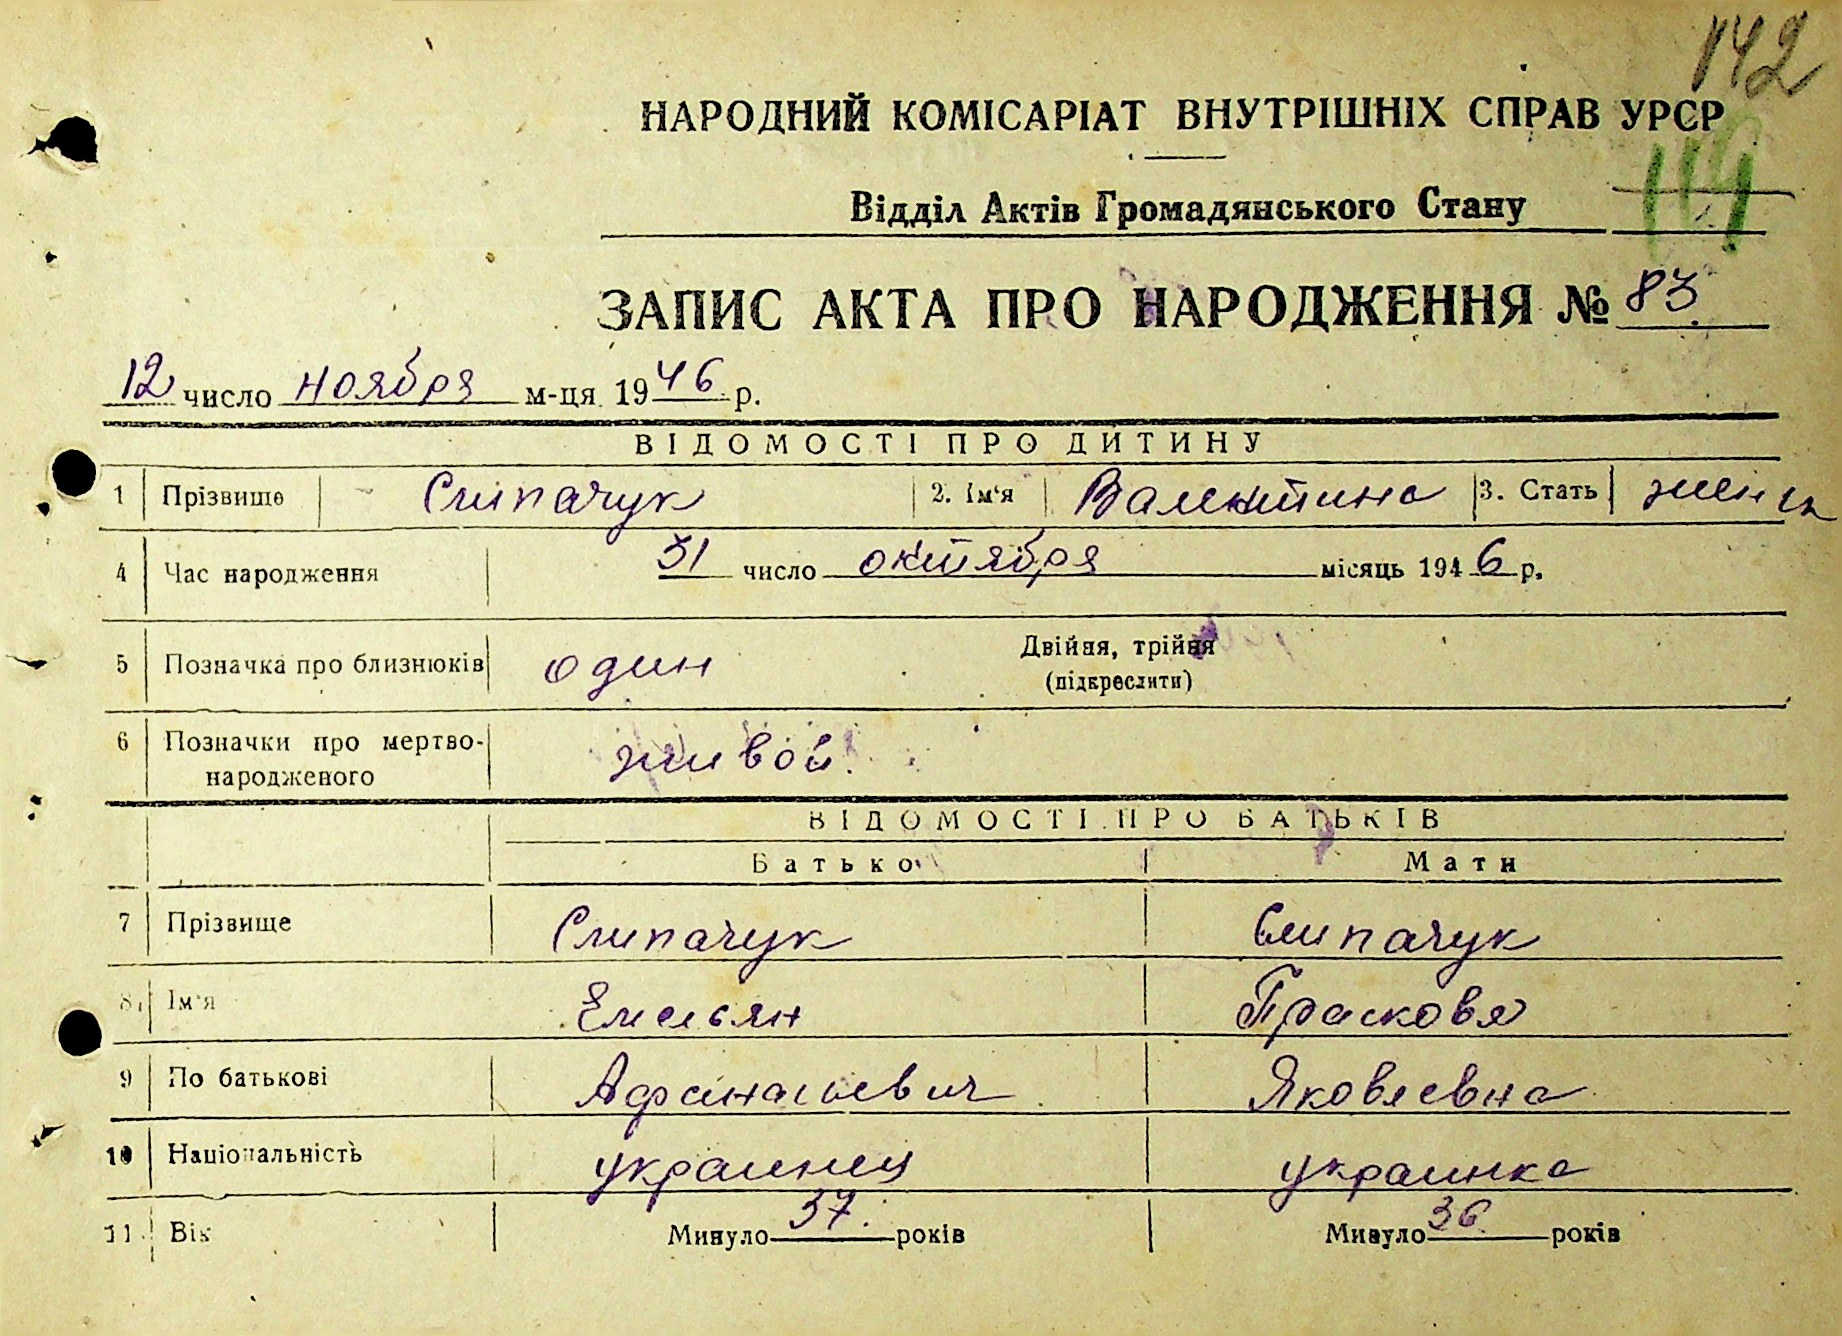 142
НАРОДНИЙ КОМІСАРІАТ ВНУТРІШНІХ СПРАВ УРСР
119
Відділ Актів Громадянського Стану
ЗАПИС АКТА ПРО НАРОДЖЕННЯ № 83
12 число ноября м-ця 1946 р.
ВІДОМОСТІ ПРО ДИТИНУ
1 Прізвище Слипачук 2. Ім‘я Валентина 3. Стать женск
4 Час народження 31 число октября місяць 1946 р.
5 Позначка про близнюків один Двійня, трійня
(підкреслити)
6 Позначки про мертво-
народженого живой.
ВІДОМОСТІ ПРО БАТЬКІВ
Батько Мати
7 Прізвище Слипачук Слипачук
8 Ім‘я Емельян Прасковя
9 По батькові Афанасьевич Яковлевна
10 Національність украинец украинка
11 Вік Минуло 37. років Минуло 36 років